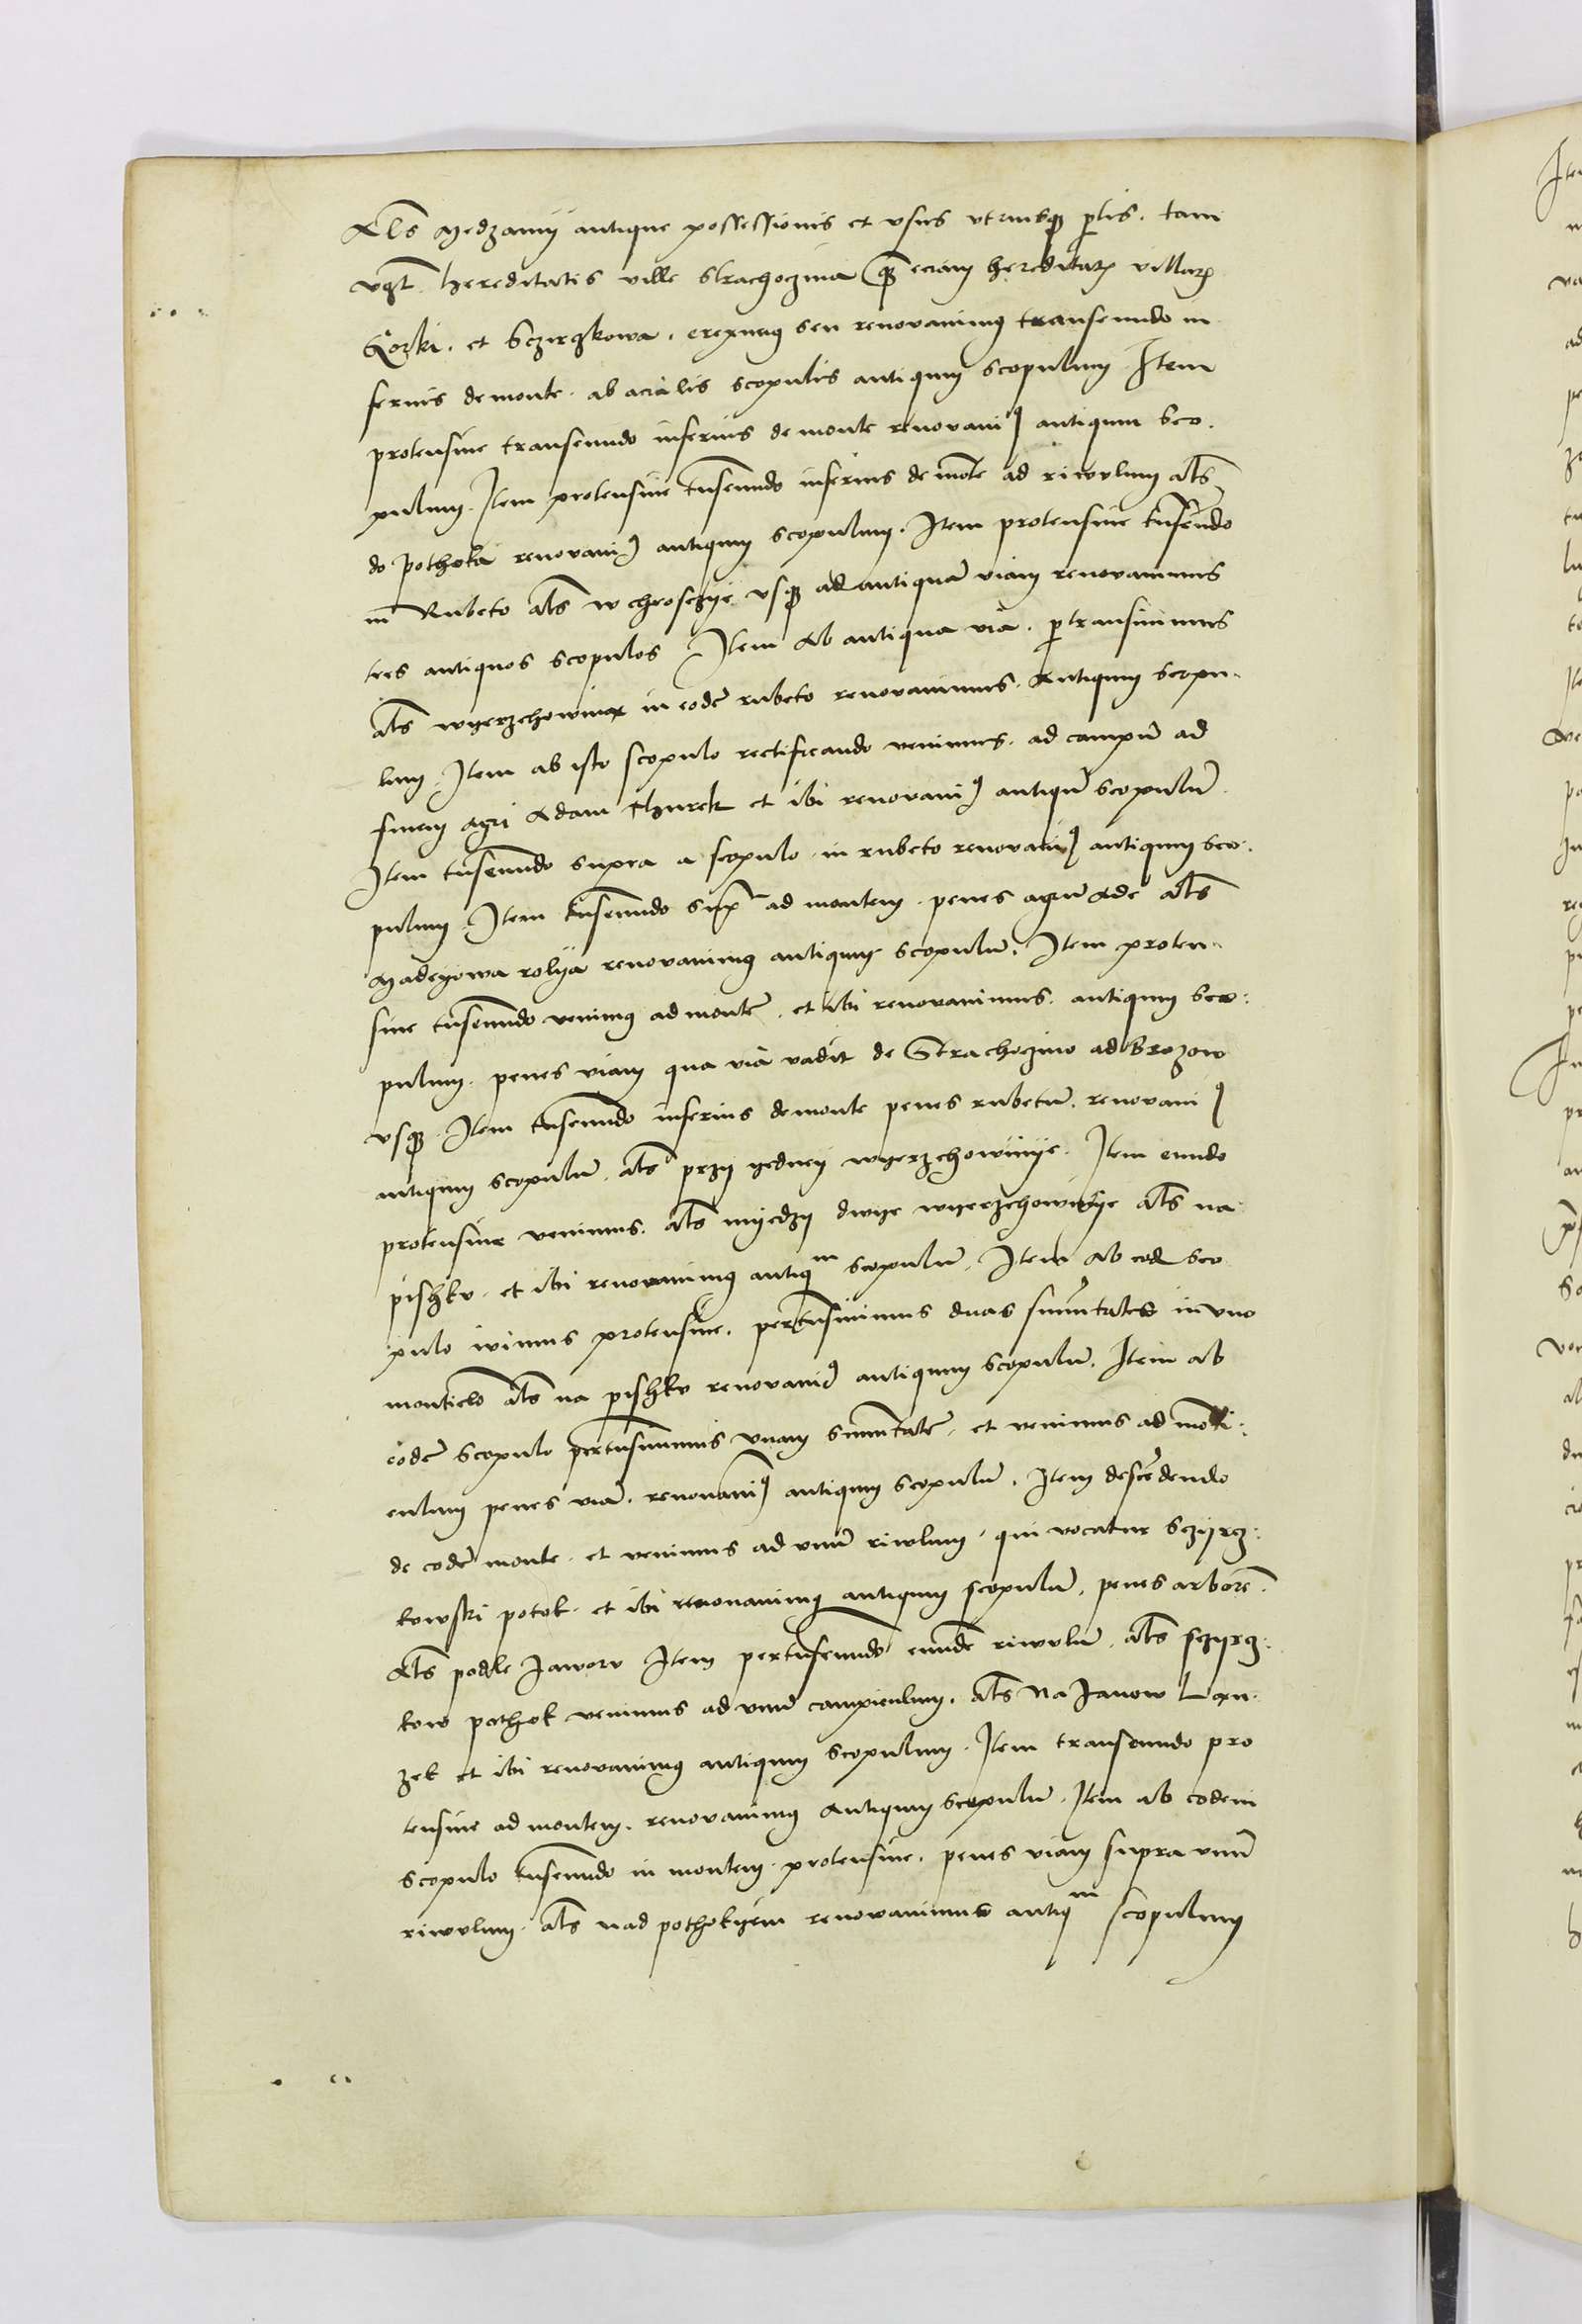 Als Medzamy antique possessionis et vsus vtriusq partis. tam
vₚt hereditatis ville Strachoczina q̃ eciam hereditatꝝ villarꝝ
Gorki. et Sczirzkowa. ereximus seu renovauimus transeundo in
ferius de monte. ab acialis scopulis antiquum scopulum Item
protensiue transeundo inferius de monte renovauimꝰ antiquum sco.
pulum. Item protensiue trāseundo inferius de mōte ad riwulum als
do Pothoka renovauimꝰ antiquum scopulum. Item protensiue trāseūdo
in Rubeto als w chrosczye vsq ad antiquā viam renovauimus
tres antiquos scopulos Item Ab antiqua via. ptransiuimus
als wyerzchowina in eodē rubeto renovauimus. Antiquum scopu.
lum. Item ab isto scopulo rectificando venimus. ad campū ad
finem agri Adam Thurek et ibi renovauimꝰ antiquū scopulum
Item trāseundo supra a scopulo in rubeto renovauimꝰ antiquum sco.
pulum. Item trāseundo supra ad montem. penes agrū Ade als
Madeyowa rolya renovauimus antiquum scopulū. Item proten
siue trāseundo venimus ad montē. et ibi renovauimus. antiquum sco:
pulum. penes viam qua via vadit de Strachoczino ad Brozow
vsq. Item trāseundo inferius de monte penes rubetum. renovauimꝰ
antiquum scopulū. als przy yedney wyerzchowinye. Item eundo
protensiue venimus. als myedzy dwye wyerzchowinye als na
pishku. et ibi renovauimus antiqum scopulū. Item Ab eod sco
pulo iuimus protensiue. pertrāsiuimus duas sumitates in vno
monticlo als na pishku renovauimꝰ antiquum scopulū. Item ab
eodē scopulo pertrāsiuimus vnam sumitatē. et venimus ad moti:
culum penes viā. renovauimꝰ antiquum scopulū. Item descēdendo
de eodē monte. et venimus ad vnū riwlum. qui vocatur Sczyrz:
kowski potok. et ibi renovauimus antiquum scopulū. penes arborē.
Als podle Jaworu Item pertrāseundo eundē riwulū. als sczyrz:
kow pothok venimus ad vnū campiculum. als Na Janow Lan
zek et ibi renovauimus antiquum scopulum. Item transeundo pro
tensiue ad montem. renovauimus Antiquum scopulū. Item ab eodem
scopulo trāseundo in montem. protensiue. penes viam supra vnū
riwulum. als nad pothokyem renowauimus antiqum scopulum